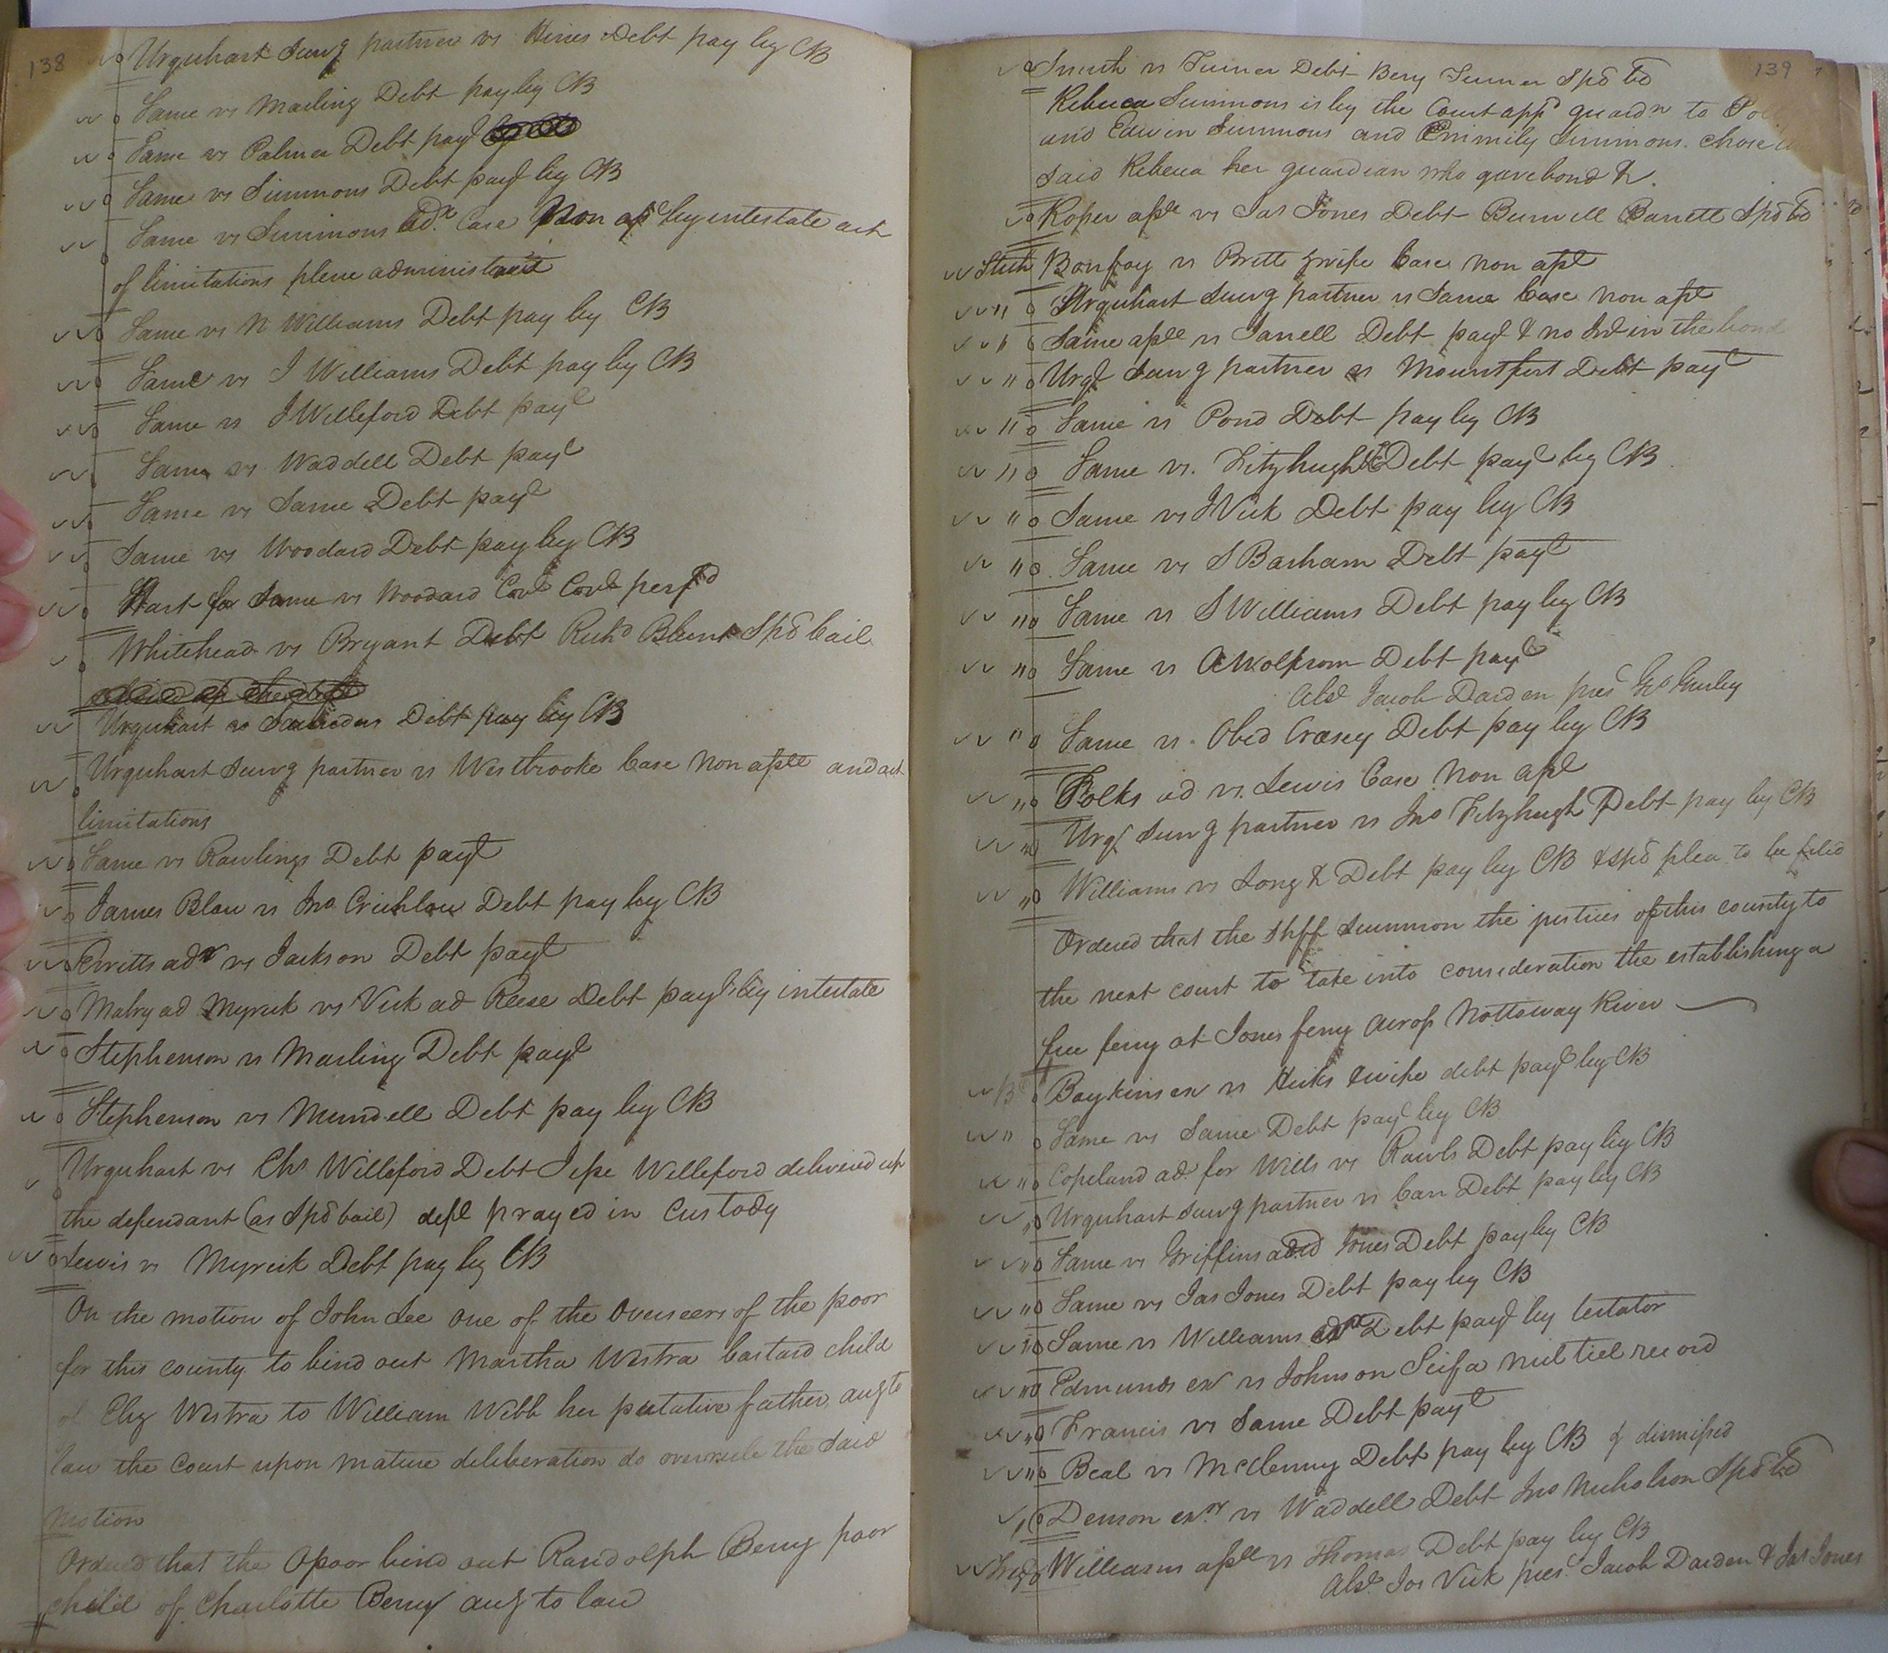 138
Urquhart Survg partner vs Hines Debt pay by CB
Same vs Marling Debt pay by CB
Same vs Palmer Debt payt
Same vs Simmons Debt payt by CB
Same vs Simmons adr. Case Non ass by intestate act
of limitations plene administravit
Same vs N Williams Debt pay by CB
Same vs J Williams Debt pay by CB
Same vs J Willeford Debt payt
Same vs Waddell Debt payt
Same vs Same Debt payt
Same vs Woodard Debt pay by CB
Hart for Same vs Woodard Covt Covt perfd
Whitehead vs Bryant Debt Richd Blunt Spd bail
Urquhart vs Debt pay by CB
Urquhart Survg partner vs Westbrooke Case Non apst and act
limitations
Same vs Rawlings Debt payt
James Blow vs Jno Crichlow Debt pay by CB
adr vs Jackson Debt payt
Mabry ad Myrick vs Vick ad Reese Debt payt by intestate
Stephenson vs Marling Debt payt
Stephenson vs Mundell Debt pay by CB
Urquhart vs Chs Willeford Debt Jesse Willeford delivered up
the defendant (as Spd bail) deft prayed in Custody
Lewis vs Myrick Debt pay by CB
On the motion of John Lee one of the Overseers of the poor
for this county to bind out Martha Westra bastard child
of Eliz Westra to William Webb her putative father, aug to
law the Court upon mature deliberation do overrule the said
Motion
Ordered that the Opoor bind out Randolph Berry poor
child of Charlotte Berry aug to law
139
Smith vs Turner Debt Benj Turner Spd bd
Rebecca Simmons is by the Court appd guardn to
and Edwin Simmons and Emmily Simmons chose
said Rebeca her guardian who gave bond &.
Roper apst vs Jas Jones Debt Burwell Barrett Spd bd
Bonfoy vs Britt & wife Case Non apst
" Urquhart Survg partner vs Same Case Non apst
" Same apst vs Jarrell Debt payt & no Int in the bond
" Urqt Survg partner vs Mountfort Debt payt
" Same vs Pond Debt pay by CB
" Same vs. Fitzhugh Debt payt by CB
" Same vs J Vick Debt pay by CB
" Same vs S Barham Debt payt
" Same vs S Williams Debt pay by CB
" Same vs A Wolfrom Debt payt
Abst Jacob Darden prest Gurley
" Same vs Obed Crasey Debt pay by CB
" Folks ad vs. Lewis Case Non apst
" Urqt Survg partner vs Jno Fitzhugh Debt pay by CB
" Williams vs Long & Debt pay by CB & spd plea to be filed
Ordered that the Shff Summon the justices of this county to
the next court to take into consideration the establishing a
free ferry at Jones ferry across Nottoway River
Boykins ex vs Hicks & wife debt payt by CB
" Same vs Same Debt payt by CB
" Copeland ad. for Wills vs Rawls Debt pay by CB
" Urquhart Survg partner vs Carr Debt pay by CB
" Same vs Griffins Jones Debt pay by CB
" Same vs Jas Jones Debt pay by CB
" Same vs Williams exr Debt payt by testator
" Edmunds ex vs Johnson Scifa nul tiel record
" Francis vs Same Debt payt
" Beal vs McClenny Debt pay by CB & dismissed
Denson exr vs Waddell Debt Jno Nicholson Spd bd
Williams apst vs Thomas Debt pay by CB
Abst Jos Vick prest Jacob Darden & Jas Jones